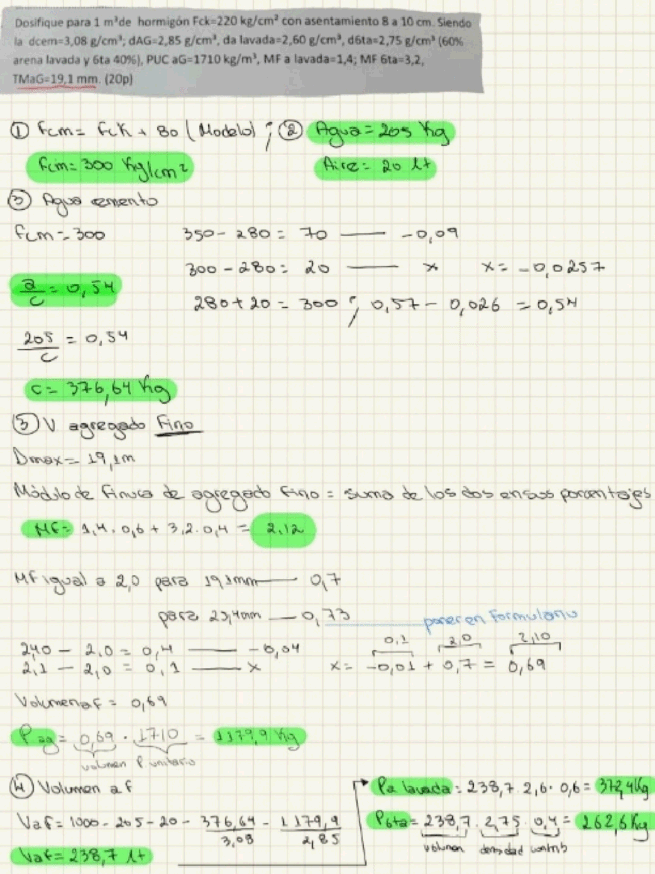 Dosifique para 1 m³de hormigón Fck=220 kg/cm² con asentamiento 8 a 10 cm. Siendo
la dcem=3,08 g/cm³; dAG=2,85 g/cm³, da lavada=2,60 g/cm³, d6ta=2,75 g/cm³ (60%
arena lavada y 6ta 40%), PUC aG=1710 kg/m³, MF a lavada=1,4; MF 6ta=3,2,
TMaG=19,1 mm. (20p)
① Fcm = FcK + 80 (Modelo) ; ② Agua = 205 Kg
Fcm = 300 Kg/cm² Aire = 20 lt
③ Agua cemento
Fcm = 300 350 - 280 = 70 — -0,09
300 - 280 = 20 — x x = -0,0257
a/c = 0,54 280 + 20 = 300 ; 0,57 - 0,026 = 0,54
205/c = 0,54
c = 376,64 Kg
③ V agregado Fino
Dmax = 19,1m
Módulo de Finura de agregado Fino = suma de los dos porcentajes
MF = 1,4 . 0,6 + 3,2 . 0,4 = 2,12
MF igual a 2,0 para 19,1mm — 0,7
para 25,4mm — 0,73 poner en Formulario
2,40 - 2,0 = 0,4 — -0,04 0,1 2,0 2,10
2,1 - 2,0 = 0,1 — x x = -0,01 + 0,7 = 0,69
Volumen af = 0,69
Pag = 0,69 . 1710 = 1179,9 Kg
volumen P. unitario
④ Volumen af Pa lavada = 238,7 . 2,6 . 0,6 = 372,4Kg
Vaf = 1000 - 205 - 20 - 376,64/3,08 - 1179,9/2,85 P6ta = 238,7 . 2,75 . 0,4 = 262,6 Kg
Vaf = 238,7 lt volumen densidad